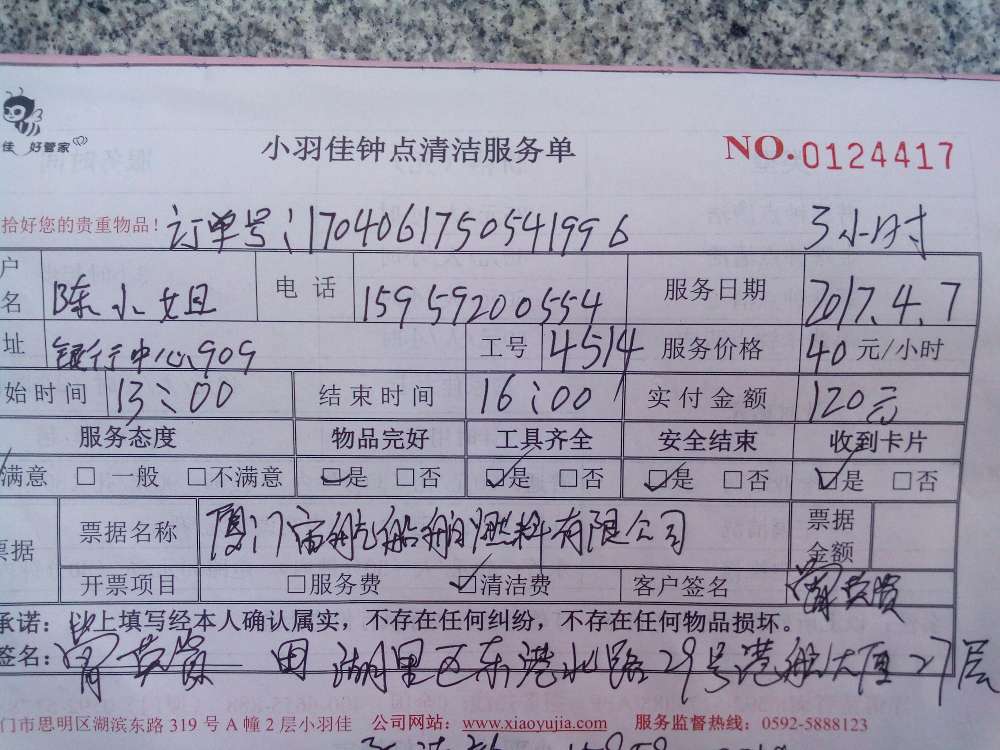 佳 好管家
小羽佳钟点清洁服务单 NO.0124417
拾好您的贵重物品! 订单号:1704061750541996 3小时
户名 陈小姐 电话 15959200554 服务日期 2017.4.7
址 银行中心909 工号 4514 服务价格 40 元/小时
始时间 13:00 结束时间 16:00 实付金额 120元
服务态度 物品完好 工具齐全 安全结束 收到卡片
满意 □ 一般 □不满意 ☑是 □否 ☑是 □否 ☑是 □否 ☑是 □否
票据 票据名称 厦门宙航船舶燃料有限公司 票据金额
开票项目 □服务费 ☑清洁费 客户签名
承诺:以上填写经本人确认属实,不存在任何纠纷,不存在任何物品损坏。
签名: 湖里区东港北路29号港航大厦27层
门市思明区湖滨东路 319 号 A 幢 2 层小羽佳 公司网站:www.xiaoyujia.com 服务监督热线:0592-5888123